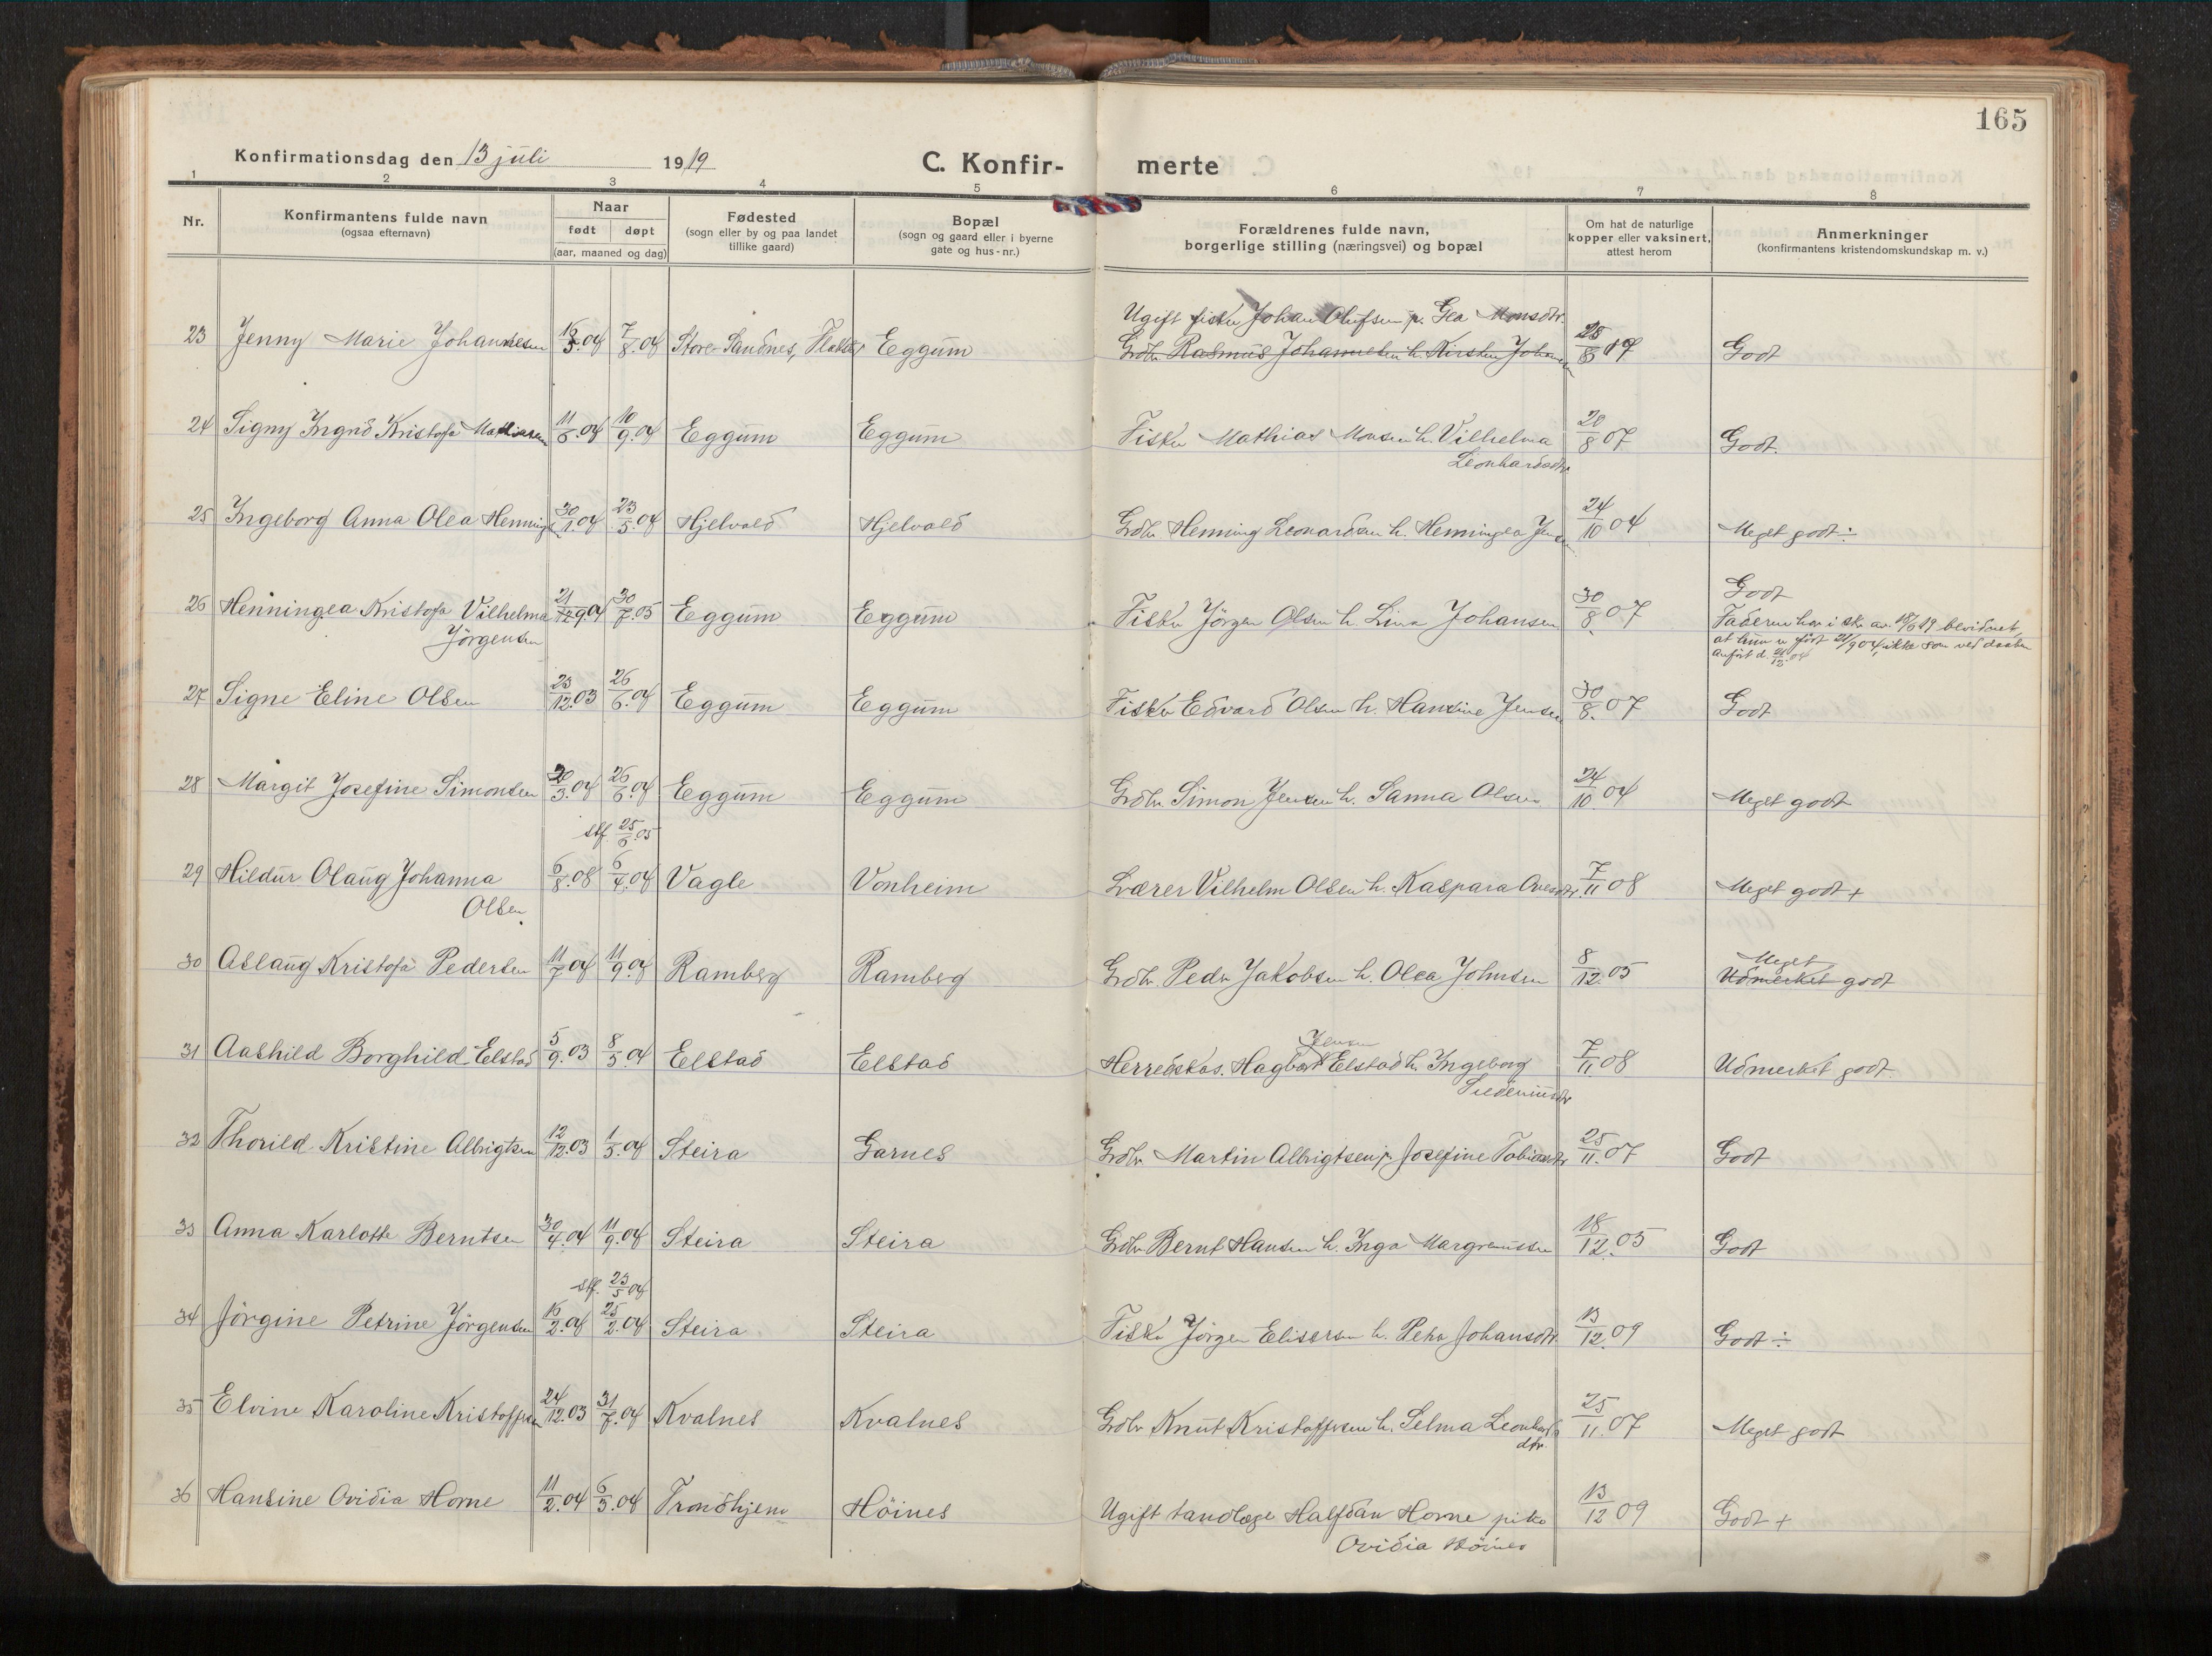 165
Konfirmationsdag den 13 juli 1919
C. Konfir- merte
1 2 3 4 5 6 7 8
Nr.
Konfirmantens fulde navn
(ogsaa efternavn)
Naar
født døpt
(aar, maaned og dag)
Fødested
(sogn eller by og paa landet
tillike gaard)
Bopæl
(sogn og gaard eller i byerne
gate og hus-nr.)
Forældrenes fulde navn,
borgerlige stilling (næringsvei) og bopæl
Om hat de naturlige
kopper eller vaksinert,
attest herom
Anmerkninger
(konfirmantens kristendomskundskap m. v.)
Ugift fisker Johan Olufsen p. Gea Monsdtr.
23 Jenny Marie Johannesen 7/8.04 Store-Sandnes, Eggum Grdbr Rasmus Johannesen h. Kirsten Johansen 28/8 07 Godt
24 Signy Ingrid Kristofa Mathiesen 11/6.04 10/9.04 Eggum Eggum Fisker Mathias Monsen h. Vilhelma 20/8 07 Godt.
Leonhardsdtr
25 Ingeborg Anna Olea Hennings. 30/1.04 23/5.04 Hjelvold Hjelvold Grdbr Henning Leonardsen h. Henningea Jensen 24/10 04 Meget godt ÷
Godt
26 Henningea Kristofa Vilhelma 21/9.04 30/7.05 Eggum Eggum Fisker Jörgen Olsen h. Lina Johansen 30/8. 07 Faderen har i skr. av 19/6 19 bevidnet,
Jörgensen
at hun er født 21/9 04, ikke som ved daaben
anført d. 21/12.04
27 Signe Eline Olsen 23/12.03 26/6.04 Eggum Eggum Fisker Edvard Olsen h. Hansine Jensen 30/8. 07 Godt
28 Margit Josefine Simonsen 20/3.04 26/6.04 Eggum Eggum Grdbr Simon Jensen h. Sanna Olsen 24/10 04 Meget godt
stf. 25/6.05
29 Hildur Olaug Johanna 6/4.04 Vagle Vonheim Lærer Vilhelm Olsen h. Kaspara Ovesdtr. 7/11 08 Meget godt +
Olsen
Meget
30 Aslaug Kristofa Pedersen 11/7.04 11/9.04 Ramberg Ramberg Grdbr. Peder Jakobsen h. Olea Johnsen 8/12.05 Udmerket godt
Jensen
31 Aashild Borghild Elstad 5/9.03 8/5.04 Elstad Elstad Herredskas. Hagbart Elstad h. Ingeborg 7/11.08 Udmerket godt
32 Thorild Kristine Albrigtsen 12/12.03 1/5.04 Steira Garnes Grdbr. Martin Albrigtsen p. Josefine Tobiasdtr 25/11.07 Godt
33 Anna Karlotte Berntsen 30/4.04 11/9.04 Steira Steira Grdbr Bernt Hansen h. Inga Margreussen 18/12.05 Godt
stf. 23/5 04
34 Jörgine Petrine Jörgensen 15/2.04 25/2.04 Steira Steira Fisker Jörgen Elisersen h. Petra Johansdtr. 13/12.09 Godt ÷
35 Elvine Karoline Kristoffersen 24/12.03 31/7.04 Kvalnes Kvalnes Grdbr Knut Kristoffersen h. Selma Leonhards 25/11.07 Meget godt
dtr.
36 Hansine Ovidia Horne 11/2.04 6/3.04 Trondhjem Höines Ugift tandlæge Halfdan Horne pike 13/12 09 Godt +
Ovidia Höines